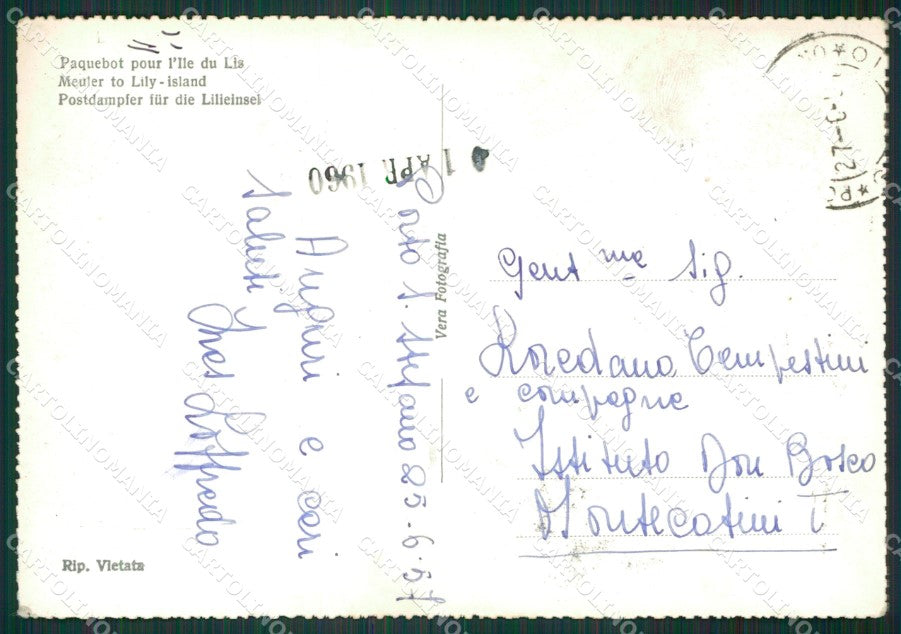 Paquebot pour l'Ile du Lis
Meuler to Lily-island
Postdampfer für die Lilieinsel
1 APR. 1960
Porto S. Stefano 25.6.57
Auguri e cari
saluti
Ines Loffredo
Vera Fotografia
Gent me Sig.
Roredana Tempestini
e compagne
Istituto Don Bosco
Montecatini T
Rip. Vietata
CARTOLINOMANIA